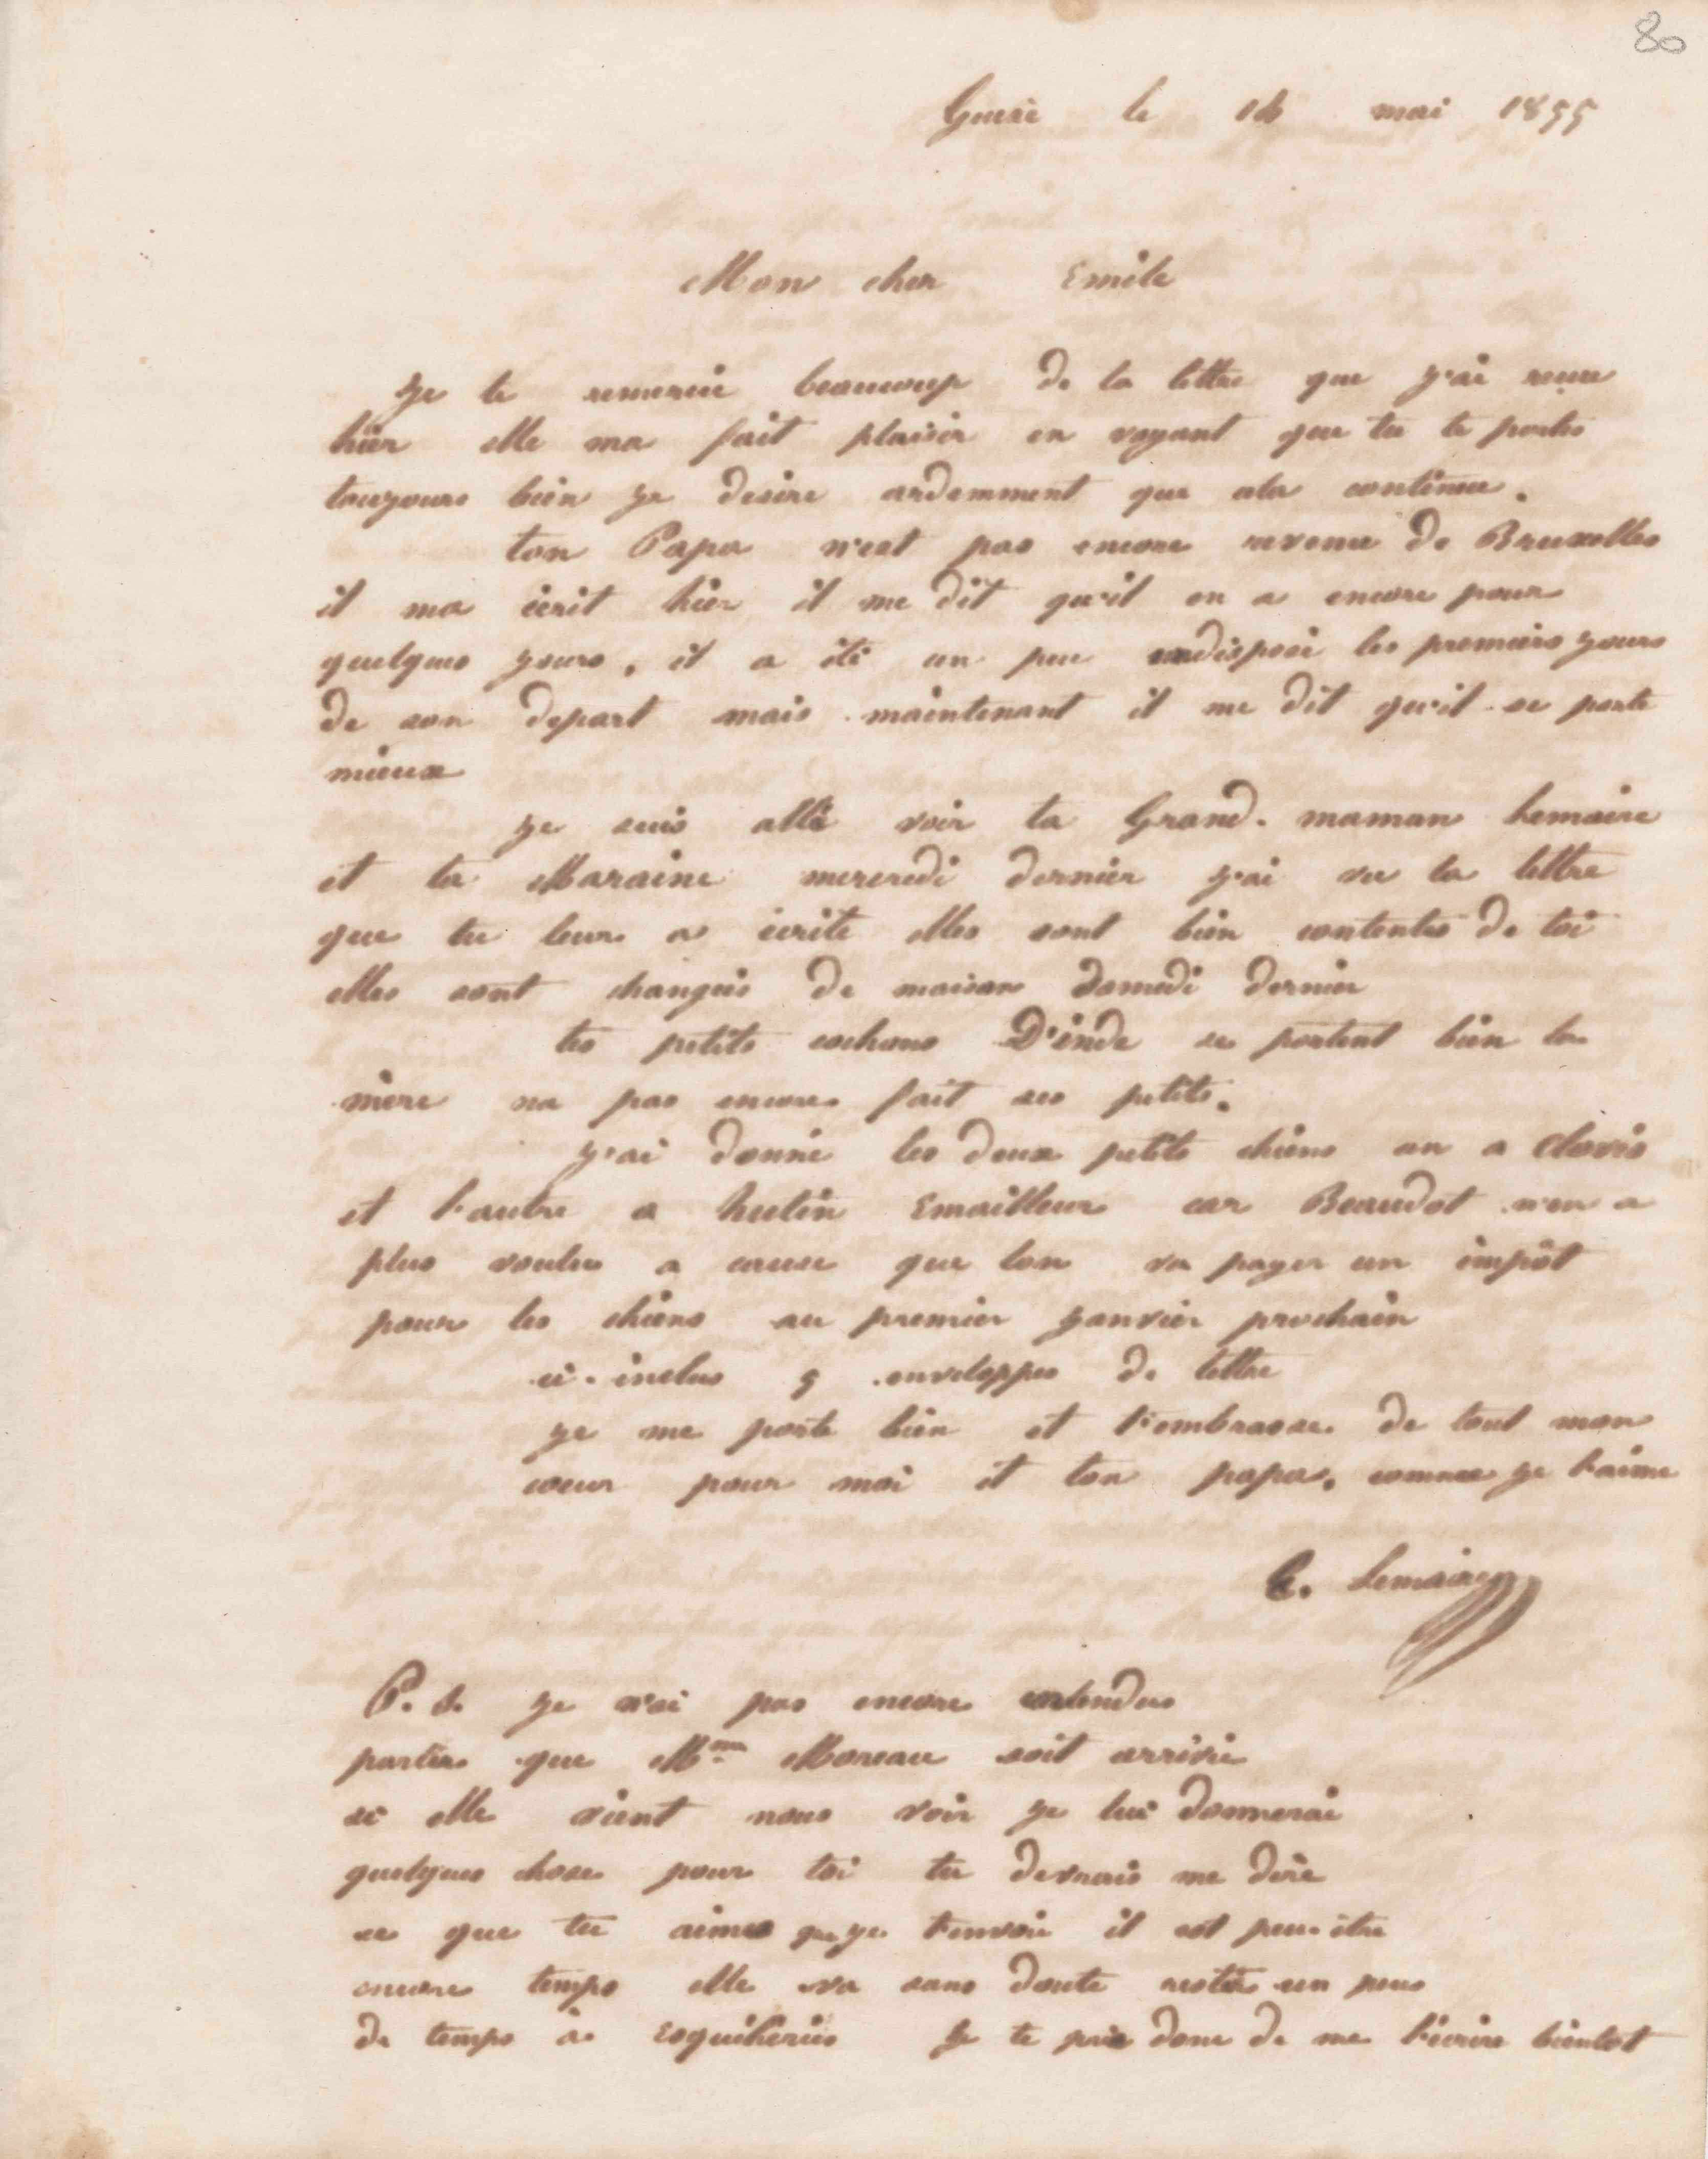 80
Guise le 14 mai 1855
Mon cher Emile
Je te remercie beaucoup de ta lettre que j'ai reçue
hier elle ma fait plaisir en voyant que tu te portes
toujours bien je desire ardemment que cela continue.
ton Papa n'est pas encore revenu de Bruxelles
il ma écrit hier il me dit qu'il en a encore pour
quelques jours, il a été un peu indisposé les premiers jours
de son depart mais maintenant il me dit qu'il se porte
mieux
je suis allé voir ta Grand-maman Lemaire
et ta Maraine mercredi dernier j'ai vu ta lettre
que tu leur a écrite elles sont bien contentes de toi
elles sont changées de maison samedi dernier
tes petits cochons D'inde se portent bien la
mère na pas encore fait ses petits.
j'ai donné les deux petits chiens un a Clovis
et l'autre a hutin Emailleur car Beaudot n'en a
plus voulu a cause que lon va payer un impôt
pour les chiens au premier janvier prochain
ci-inclus 5 enveloppes de lettre
je me porte bien et t'embrasse de tout mon
coeur pour moi et ton papa. comme je t'aime
E. Lemaire
P. S. je n'ai pas encore entendu
parler que Mme Moreau soit arrivée
si elle vient nous voir je lui donnerai
quelques chose pour toi tu devrais me dire
ce que tu aimes que je t'envoie il est peu-être
encore temps elle va sans doute resté un peu
de temps à Esquéheries Je te prie donc de me l'écrire bientot